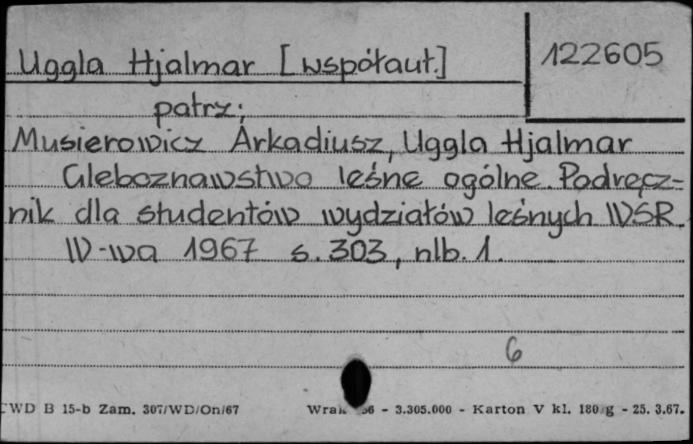 Uggla Hjalmar [współaut.]
122605
patrz:
Musierowicz Arkadiusz, Uggla Hjalmar
Gleboznawstwo leśne ogólne. Podręcz=
nik dla studentów wydziałów leśnych WSR.
W-wa 1967 s. 303, nlb. 1.
6
CWD B 15-b Zam. 307/WD/On/67 - 3.305.000 - Karton V kl. 180 g - 25. 3.67.